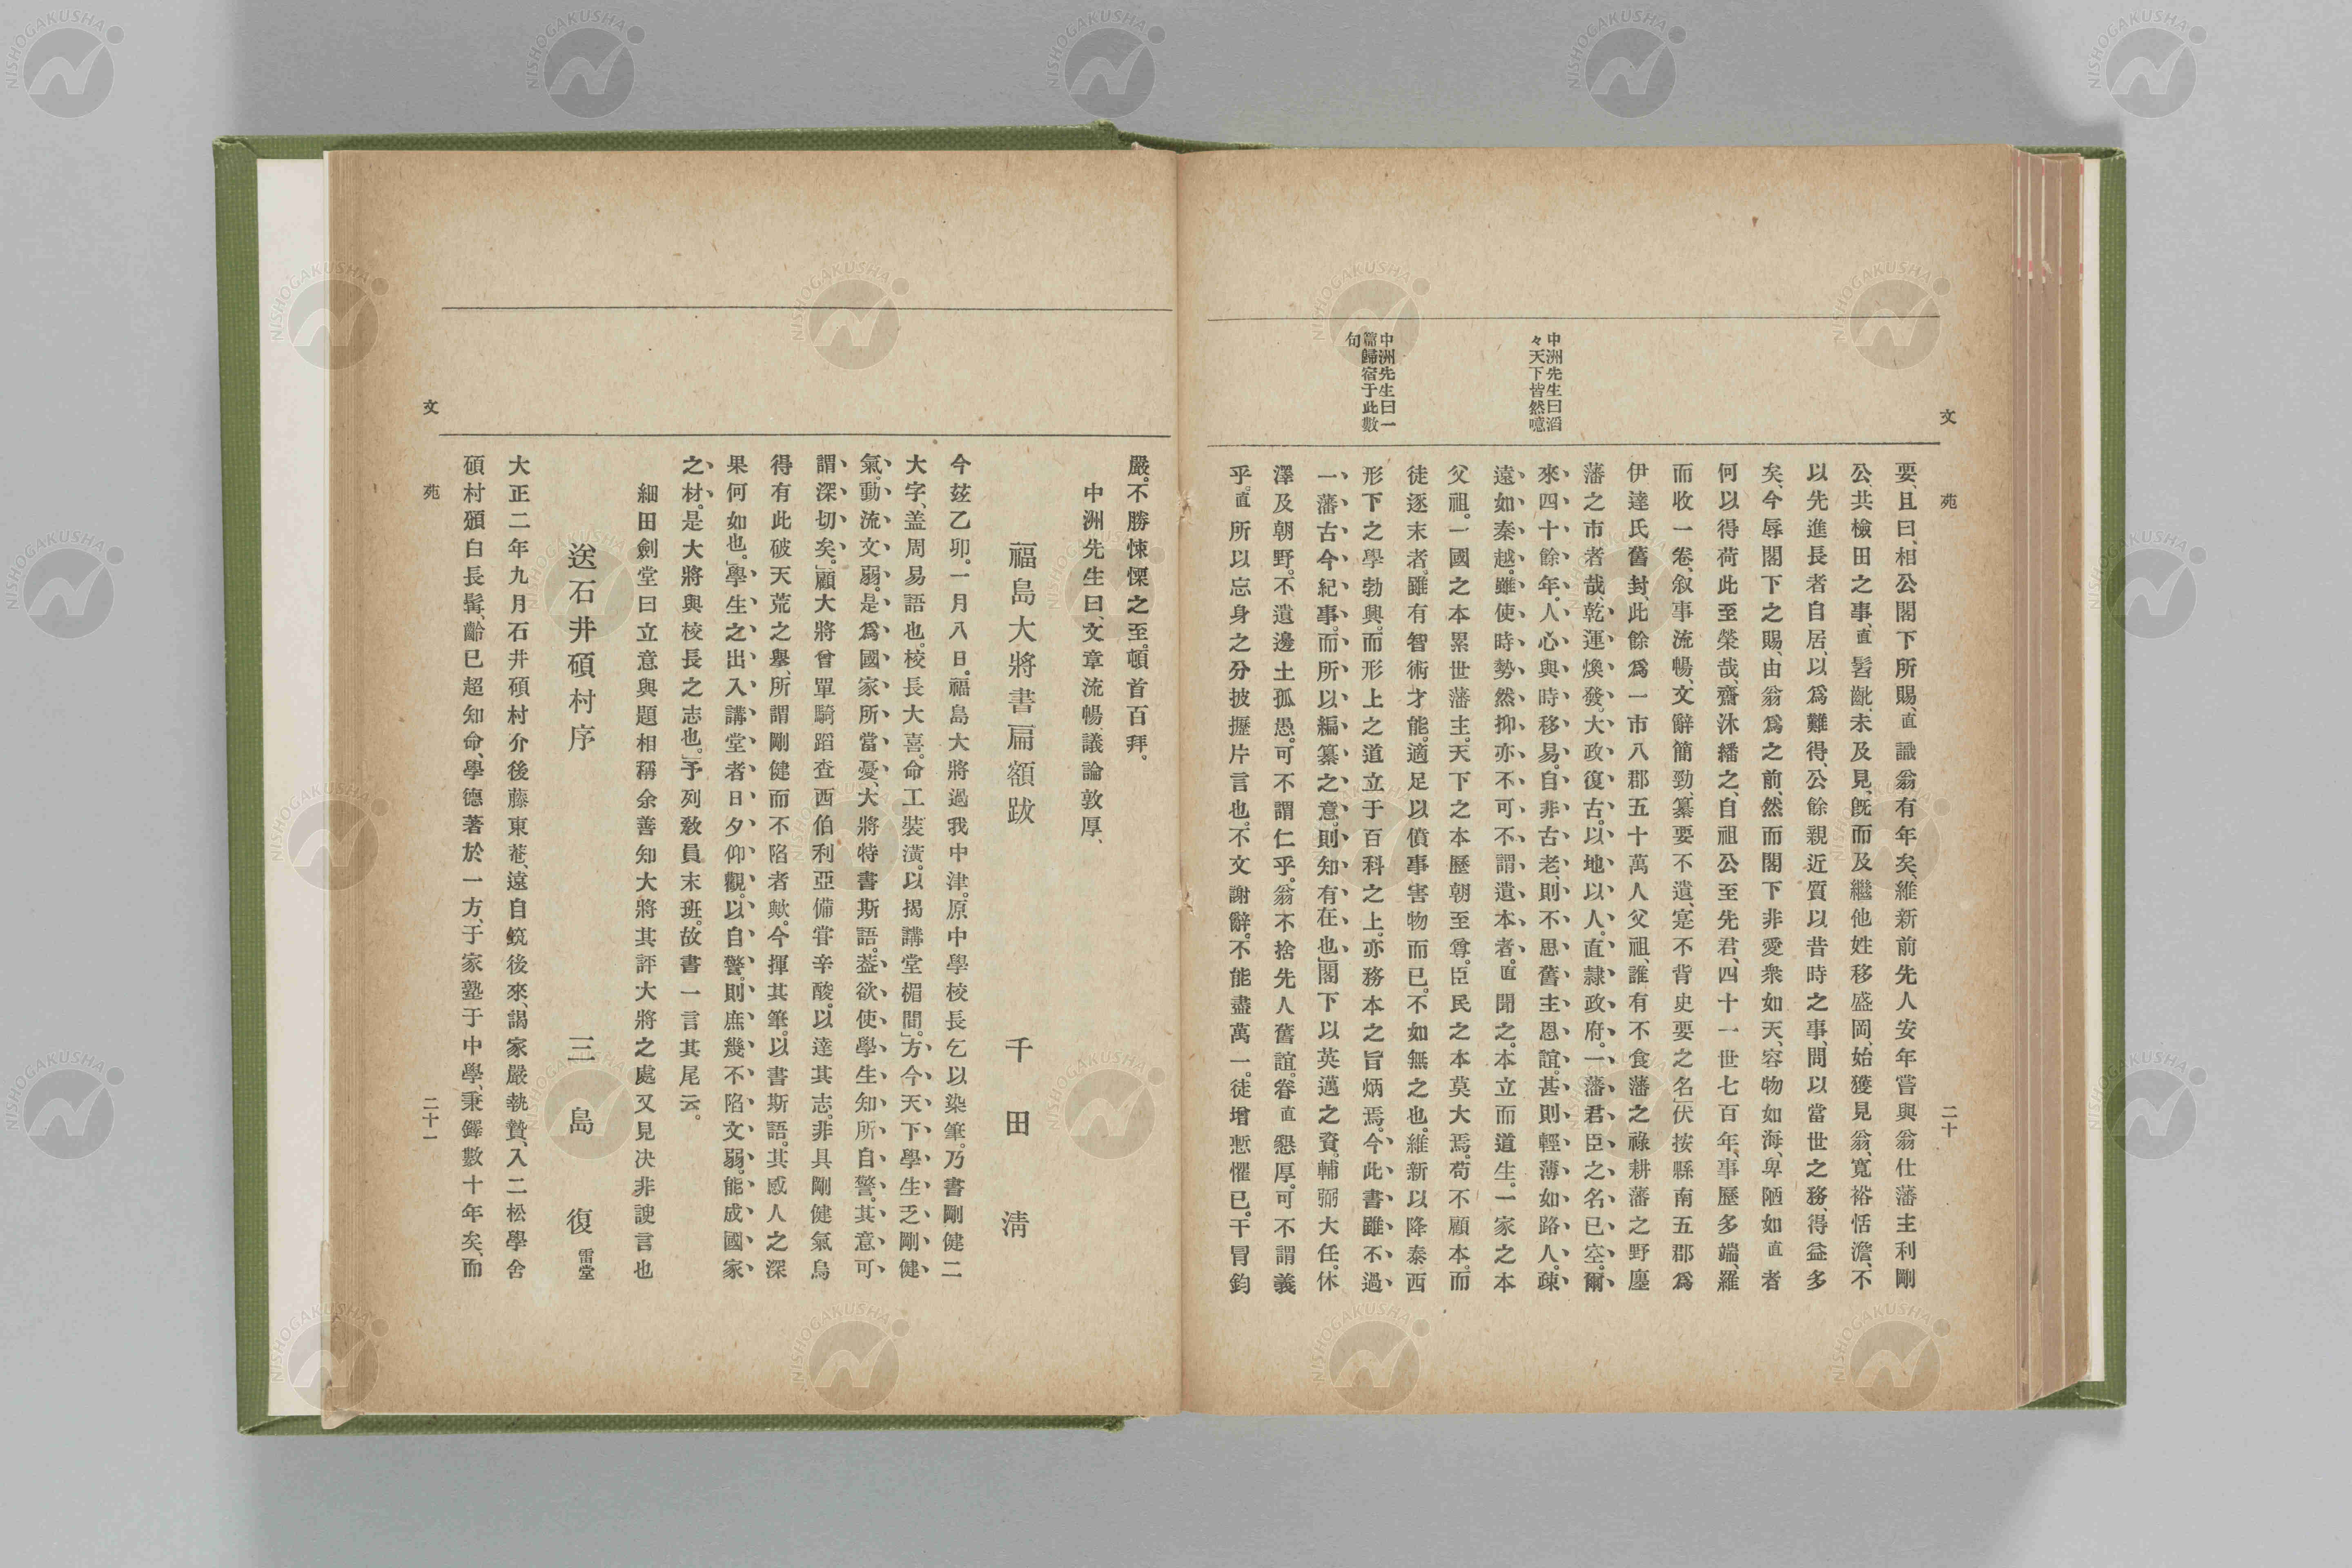 文苑
二十
中洲先生曰滔
々天下皆然噫
中洲先生曰一
篇歸宿于此數
句
要、且曰、相公閣下所賜、直識翁有年矣、維新前先人安年嘗與翁仕藩主利剛
公、共檢田之事、直髫齔、未及見、既而及繼他姓移盛岡、始獲見翁、寬裕恬澹、不
以先進長者自居、以爲難得、公餘親近質以昔時之事、問以當世之務、得益多
矣、今辱閣下之賜、由翁爲之前、然而閣下非愛衆如天、容物如海、卑陋如直者
何以得荷此至榮哉、齋沐繙之、自祖公至先君、四十一世七百年、事歷多端、羅
而收一卷、叙事流暢、文辭簡勁、纂要不遺、寔不背史要之名」伏按縣南五郡爲
伊達氏舊封、此餘爲一市八郡五十萬人父祖、誰有不食藩之祿耕藩之野廛
藩之市者哉、乾運煥發。大政復古。以地以人。直隷政府。一藩君臣之名已空。爾
來四十餘年。人心與時移易。自非古老、則不思舊主恩誼。甚則輕薄如路人。疎
遠如秦越。雖使時勢然抑亦不可不謂遺本者。直聞之。本立而道生。一家之本
父祖。一國之本累世藩主。天下之本歷朝至尊。臣民之本莫大焉。苟不顧本。而
徒逐末者。雖有智術才能。適足以僨事害物而已。不如無之也。維新以降泰西
形下之學勃興。而形上之道立于百科之上。亦務本之旨炳焉。今此書雖不過
一藩古今紀事。而所以編纂之意。則知有在也」閣下以英邁之資。輔弼大任。休
澤及朝野。不遺邊土孤愚。可不謂仁乎。翁不捨先人舊誼。眷直懇厚。可不謂義
乎。直所以忘身之分披攊片言也。不文謝辭。不能盡萬一。徒增慙懼已。干冒鈞
嚴。不勝悚慄之至。頓首百拜。
中洲先生曰、文章流暢、議論敦厚、
福島大將書扁額跋　千田淸
今茲乙卯。一月八日。福島大將過我中津。原中學校長乞以染筆。乃書剛健二
大字、盖周易語也。校長大喜。命工裝潢。以揭講堂楣間」。方今天下學生乏剛健
氣。動流文弱。是爲國家所當憂、大將特書斯語。葢欲使學生知所自警。其意可
謂深切矣。」顧大將曾單騎蹈査西伯利亞備甞辛酸。以達其志。非具剛健氣烏
得有此破天荒之擧、所謂剛健而不陷者歟。今揮其筆。以書斯語。其感人之深
果何如也。」學生之出入講堂者日夕仰觀。以自警。則庶幾不陷文弱。能成國家
之材。是大將與校長之志也。」予列敎員末班。故書一言其尾云。
細田劍堂曰立意與題相稱余善知大將其評大將之處又見决非諛言也
送石井碩村序　三島復雷堂
大正二年九月石井碩村介後藤東菴、遠自筑後來、謁家嚴執贄、入二松學舍
碩村頒白長髯、齡已超知命、學德著於一方、于家塾于中學、秉鐸數十年矣、而
文苑
二十一